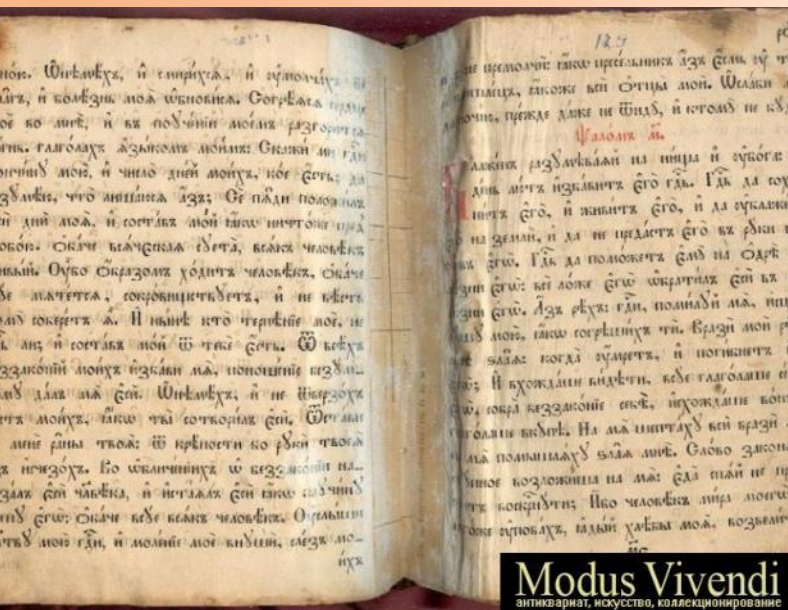 ною. Ѡнѣмѣхъ, и҆ смири́хсѧ, и҆ ᲂу҆молча́хъ
бла̑гъ, и҆ болѣ́знь моѧ̀ ѡ҆бнови́сѧ. Согрѣ́ѧсѧ се́рдце
моѐ во мнѣ̀, и҆ въ поꙋче́нїи мое́мъ разгори́тсѧ
ѻ҆́гнь. глаго́лахъ ѧ҆зы́комъ мои́мъ: Скажи́ ми гдⷭ҇и
кончи́нꙋ мою̀, и҆ число̀ дні́й мои́хъ, ко́е є҆́сть; да
разꙋмѣ́ю, что̀ лиша́юсѧ а҆́зъ; Сѐ пѧ̑ди положи́лъ
є҆сѝ дни̑ моѧ̑, и҆ соста́въ мо́й ꙗ҆́кѡ ничто́же пред̾
тобо́ю. Ѻ҆ба́че всѧ́ческаѧ сꙋета̀, всѧ́къ человѣ́къ
живы́й. Оу҆̀бо ѡ҆́бразомъ хо́дитъ человѣ́къ, ѻ҆ба́че
всꙋ́е мѧте́тсѧ, сокро́вищствꙋетъ, и҆ не вѣ́сть
комꙋ̀ собере́тъ ѧ҆̀. И҆ ны́нѣ кто̀ терпѣ́нїе моѐ, не
гдⷭ҇ь ли; и҆ соста́въ мо́й ѿ тебє̀ є҆́сть. Ѿ всѣ́хъ
беззако́нїй мои́хъ и҆зба́ви мѧ̀, поноше́нїе безꙋ́м-
номꙋ да́лъ мѧ̀ є҆сѝ. Ѡнѣмѣ́хъ, и҆ не ѿверзо́хъ
ᲂу҆́стъ мои́хъ, ꙗ҆́кѡ ты̀ сотвори́лъ є҆сѝ. Ѿста́ви
ѿ менє̀ ра̑ны твоѧ̑: ѿ крѣ́пости бо рꙋкѝ твоеѧ̀
а҆́зъ и҆счезо́хъ. Во ѡ҆бличе́нїихъ ѡ҆ беззако́нїи на-
каза́лъ є҆сѝ человѣ́ка, и҆ и҆ста́ѧлъ є҆сѝ ꙗ҆́кѡ паꙋчи́нꙋ
дꙋ́шꙋ є҆гѡ̀: ѻ҆ба́че всꙋ́е всѧ́къ человѣ́къ. Оу҆слы́ши
моли́твꙋ мою̀ гдⷭ҇и, и҆ моле́нїе моѐ внꙋшѝ, сле́зъ мо-
и́хъ
не премолчѝ: ꙗ҆́кѡ пресе́льникъ а҆́зъ є҆́смь ᲂу҆ т
пришле́цъ, ꙗ҆́коже всѝ ѻ҆тцы̀ моѝ. Ѡсла́би
да почі́ю, пре́жде да́же не ѿидꙋ̀, и҆ ктомꙋ̀ не бꙋ́
Ѱало́мъ м҃.
Блаже́нъ разꙋмѣва́ѧй на ни́ща и҆ ᲂу҆бо́га:
де́нь лю́тъ и҆зба́витъ є҆го̀ гдⷭ҇ь. Гдⷭ҇ь да сох
рани́тъ є҆го̀, и҆ живи́тъ є҆го̀, и҆ да ᲂу҆блажи́
є҆го̀ на землѝ, и҆ да не преда́стъ є҆го̀ въ рꙋ́ки
врагѡ́въ є҆гѡ̀. Гдⷭ҇ь да помо́жетъ є҆мꙋ̀ на ѻ҆дрѣ̀
болѣ́зни є҆гѡ̀: всѐ ло́же є҆гѡ̀ ѡ҆брати́лъ є҆сѝ въ
болѣ́зни є҆гѡ̀. А҆́зъ рѣ́хъ: гдⷭ҇и, поми́лꙋй мѧ̀, и҆сц
дꙋ́шꙋ мою̀, ꙗ҆́кѡ согрѣши́хъ тѝ. Вразѝ моѝ р
мнѣ̀ ѕла̑ѧ: когда̀ ᲂу҆́мретъ, и҆ поги́бнетъ
є҆гѡ̀; И҆ вхожда́ше ви́дѣти, всꙋ́е глаго́лаше се
є҆гѡ̀, собра̀ беззако́нїе себѣ̀, и҆схожда́ше во́н
глаго́лаше вкꙋ́пѣ. На мѧ̀ шепта́хꙋ всѝ вразѝ
на мѧ̀ помышлѧ́хꙋ ѕла̑ѧ мнѣ̀. Сло́во закон
престꙋ́пное возложи́ша на мѧ̀: є҆да̀ спѧ́й не пр
и́тъ воскрⷭ҇нꙋти; И҆́бо человѣ́къ ми́ра моегѡ̀
него́же ᲂу҆пова́хъ, ꙗ҆ды́й хлѣ́бы моѧ̑, возвели́ч
Modus Vivendi
антиквариат, искусство, коллекционирование